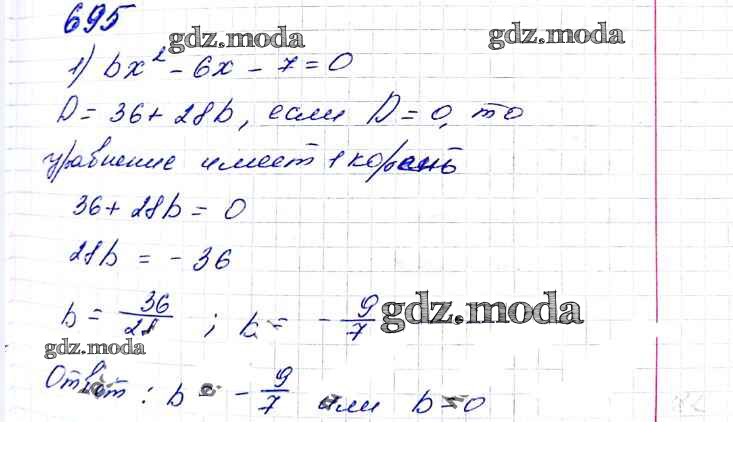 695
gdz.moda gdz.moda
1) bx² - 6x - 7 = 0
D = 36 + 28b, если D = 0, то
уравнение имеет 1 корень
36 + 28b = 0
28b = - 36
b = 36/28 ; b = - 9/7 gdz.moda
gdz.moda
Ответ : b = - 9/7 или b = 0